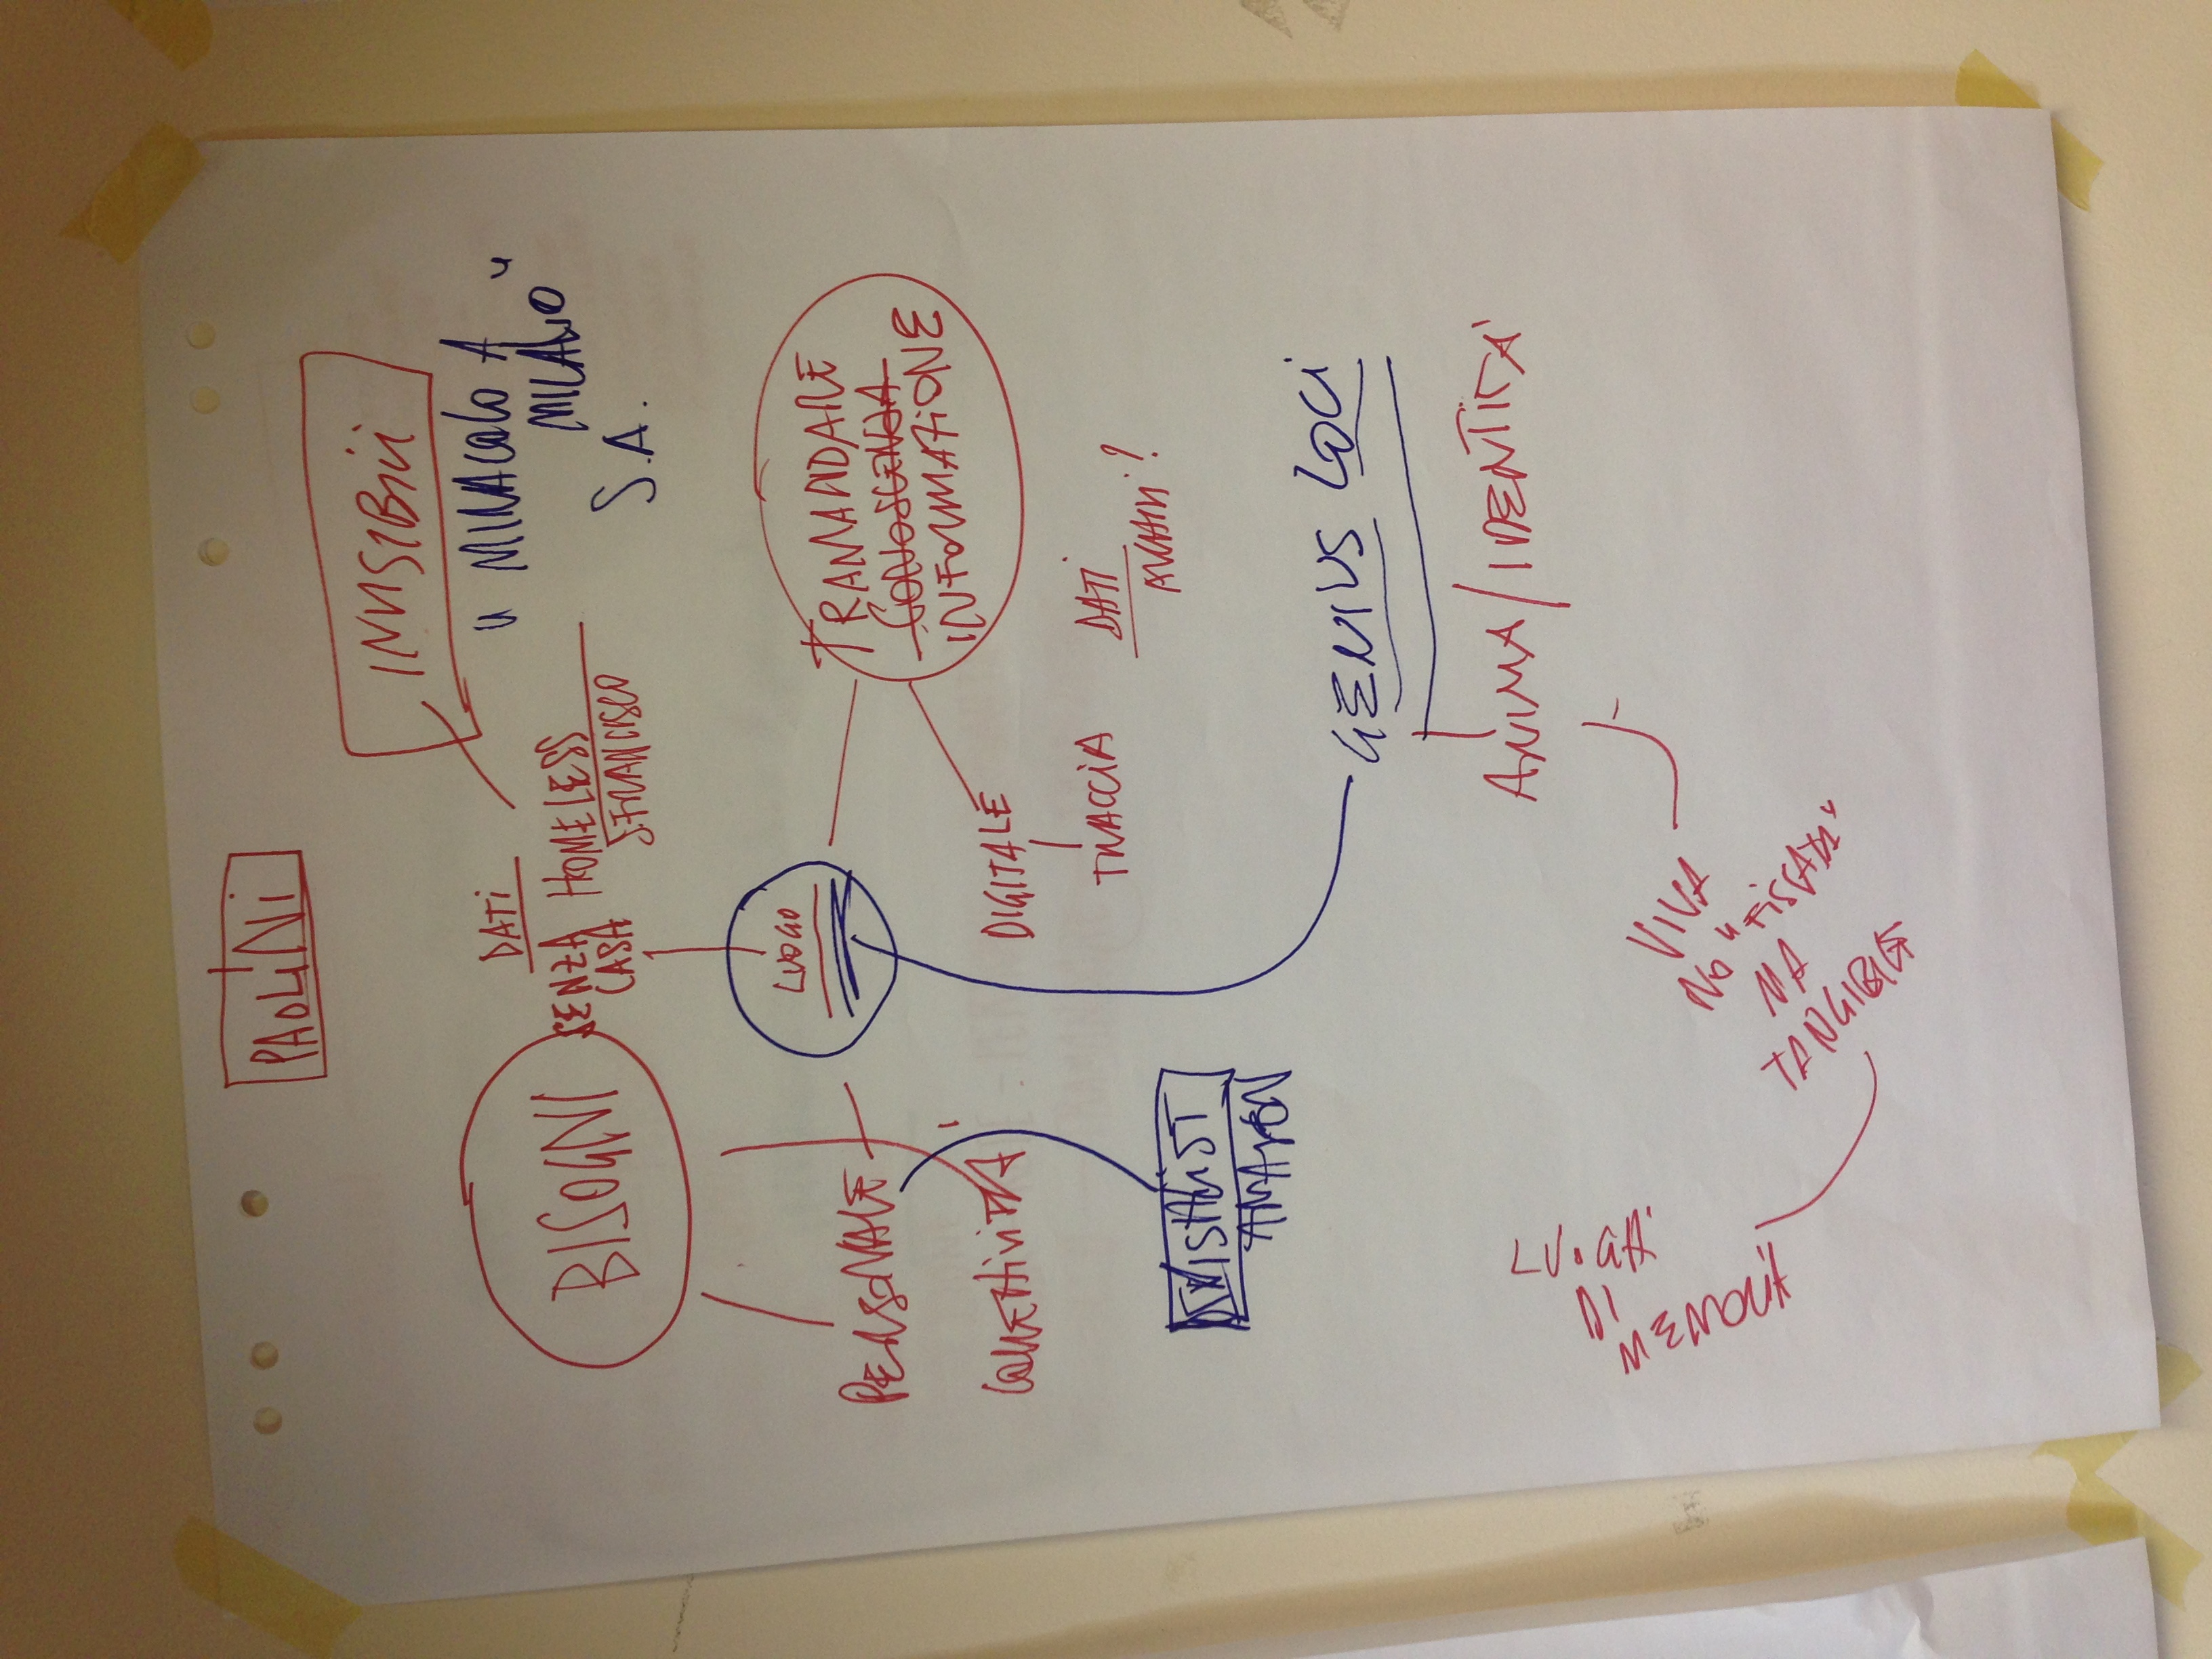 PAOLINI
INVISIBILI
"MIRACOLO A
MILANO"
S.A.
DATI
BISOGNI
SENZA
CASA
HOMELESS
S.FRANCISCO
LUOGO
PERSONALE
COLLETTIVITÀ
TRAMANDARE
CONOSCENZA
INFORMAZIONE
DIGITALE
TRACCIA
DATI
WISHLIST
AMAZON
GENIUS LOCI
ANIMA/IDENTITÀ
VIVA
NO "FISICATA"
MA
TANGIBILE
DI MEMORIA